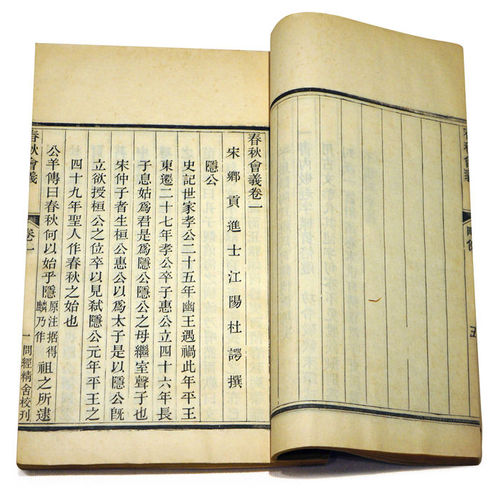 五
春秋會義卷一
宋鄉貢進士江陽杜諤撰
隱公
史記世家孝公二十五年幽王遇禍此年平王
東遷二十七年孝公卒子惠公立四十六年長
子息姑爲君是爲隱公隱公之母繼室聲子也
宋仲子者生桓公惠公以爲太子是以隱公旣
立欲授桓公之位卒以見弒隱公元年平王之
四十九年聖人作春秋之始也
公羊傳曰春秋何以始乎隱原注得麟乃作祖之所逮
春秋會義 卷一 一問經精舍校刊